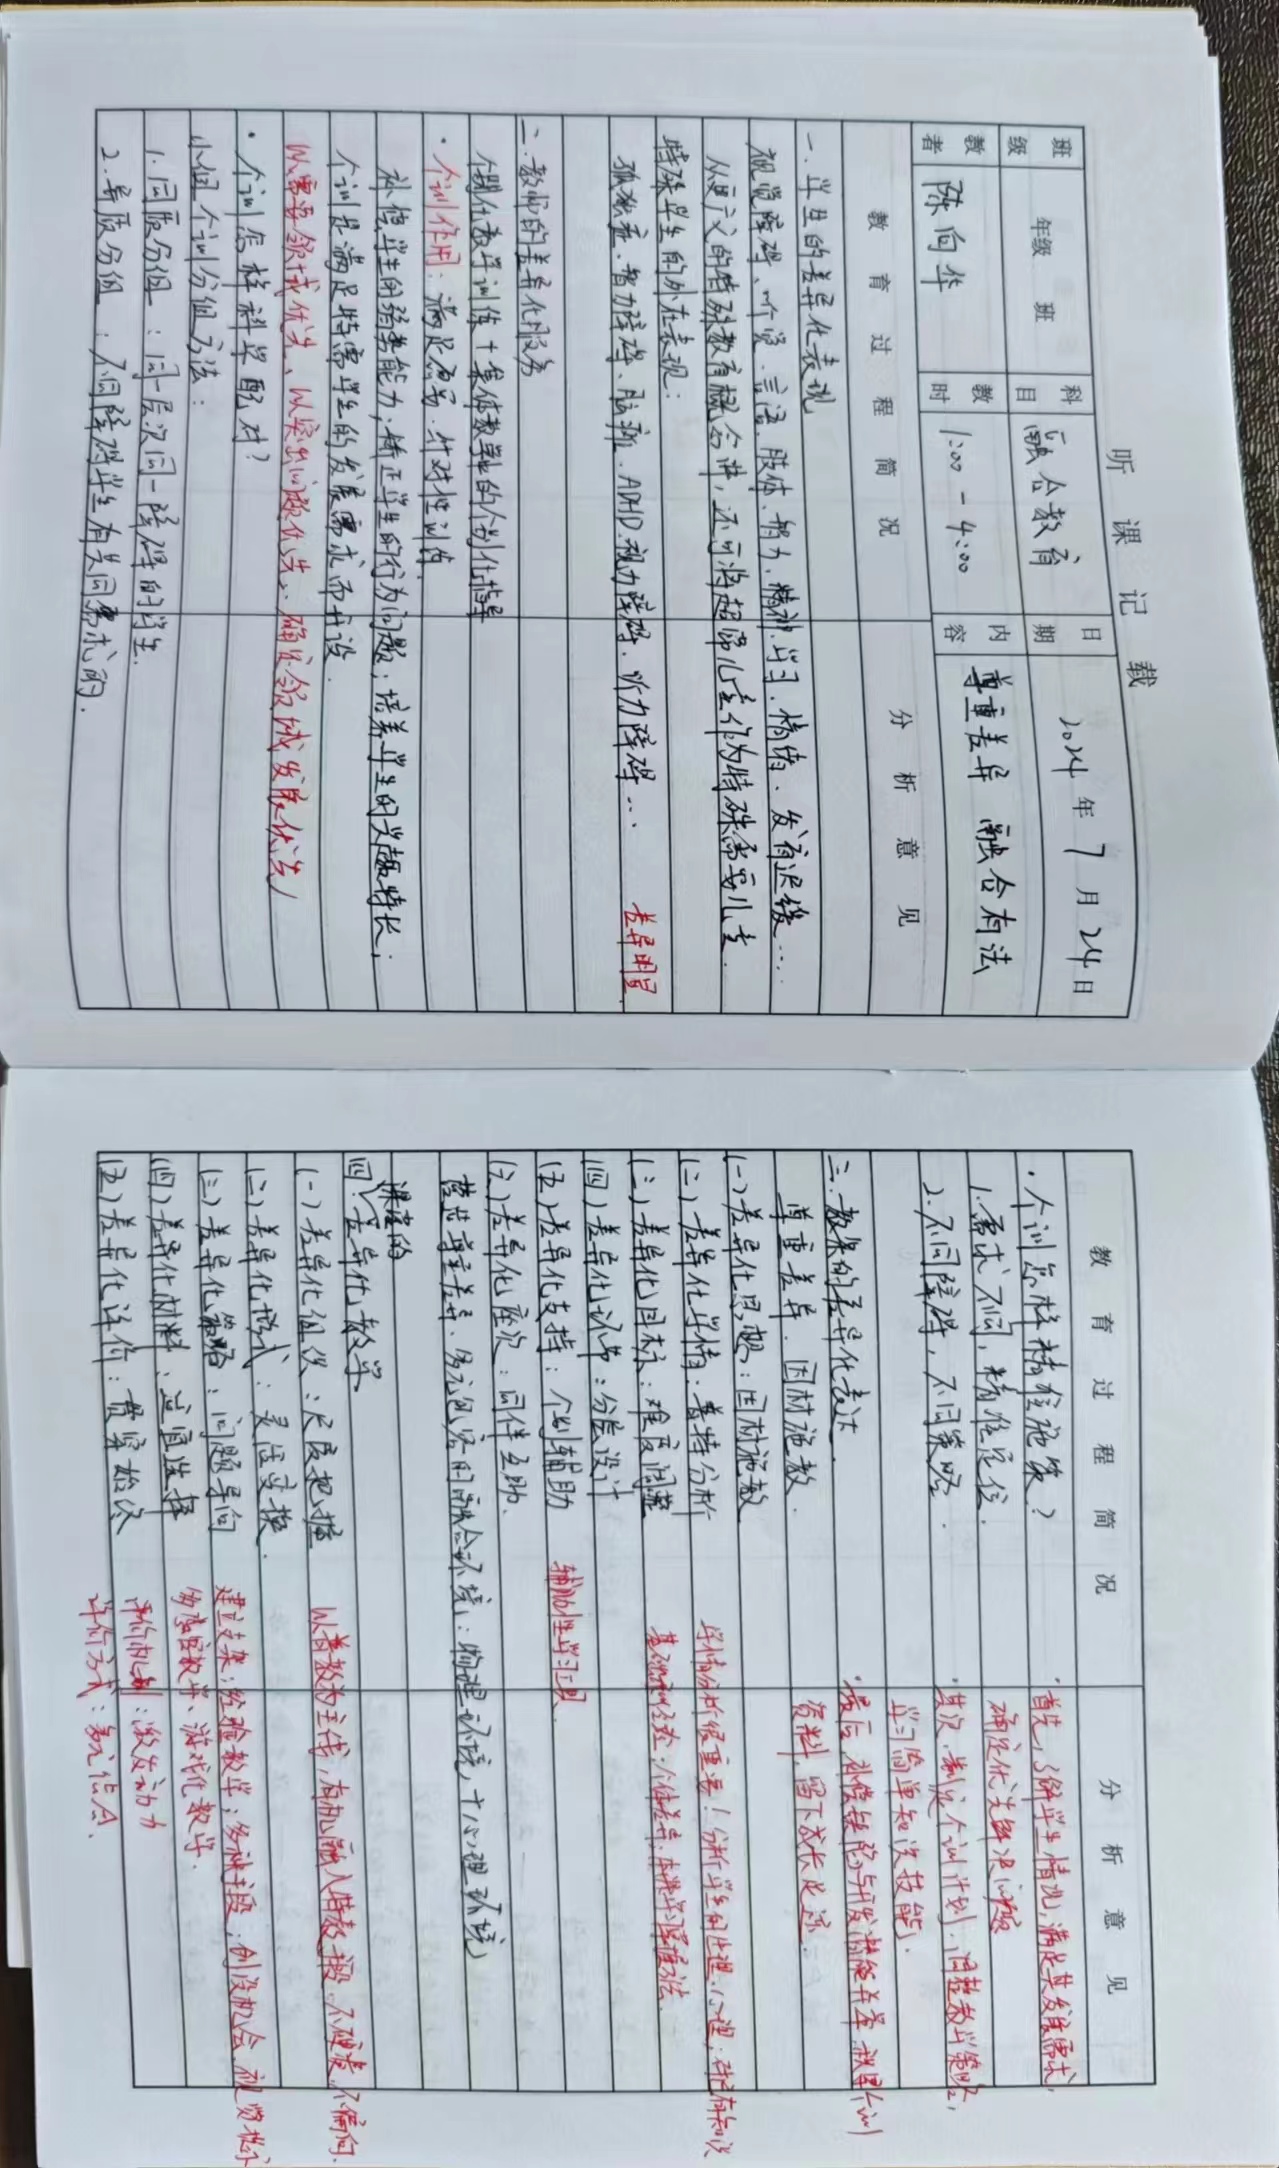 听课记载
班级 年级 班 科目 融合教育 日期 2024 年 7 月 24 日
教者 陈向华 教时 1:00-4:00 内容 尊重差异 融合有法
教育过程简况 分析意见
一. 学生的差异化表现
视觉障碍、听觉、言语、肢体、智力、精神、学习、情绪、发育迟缓…
从更广义的特殊教育概念讲,还可将超常儿童作为特殊需要儿童.
特殊学生的外在表现:
孤独症、智力障碍、脑瘫、ADHD、视力障碍、听力障碍… 差异明显
二. 教师的差异化服务
个别化教学训练+集体教学中的个别化指导
· 个训作用: 满足需要、针对性训练
补偿学生的弱势能力,矫正学生的行为问题;培养学生的兴趣特长;
个训是满足特需学生的发展需求而开设.
以需要领域优先、以突出问题优先、确定领域发展优先
· 个训怎样科学配对?
小组个训分组方法:
1. 同质分组:同一层次同一障碍的学生.
2. 异质分组:不同障碍学生有共同需求的.
教育过程简况 分析意见
· 个训怎样精准施策?
· 首先,了解学生情况,满足其发展需求,
1. 需求不同,精准定位.
确定优先解决问题
2. 不同障碍,不同策略.
· 其次,制定个训计划,调整教学策略,
学习简单知识技能.
三. 教案的差异化表达
· 最后,补偿缺陷与开发潜能并举 积累个训
尊重差异、因材施教.
资料,留下成长足迹.
(一) 差异化思想:因材施教
(二) 差异化学情:普特分析
学情分析很重要!分析学生的生理、心理;已有知识
(三) 差异化目标:难度调整
个体差异;学习掌握方法.
(四) 差异化环节:分层设计
(五) 差异化支持:个别辅助 辅助性学习工具
(六) 差异化座次:同伴互助.
营造尊重差异、多元包容的融合环境:物理环境+心理环境
四.课堂的差异化教学
(一) 差异化组织:尺度把握 以普教为主体,有机融入特教手段、不硬套、不偏向.
(二) 差异化形式:灵活变换.
(三) 差异化策略:问题导向 建立支架;经验教学;多种手段;创设机会、视觉提示
(四) 差异化材料:适宜选择 多感官教学、游戏化教学.
(五) 差异化评价:贯穿始终 评价机制:激发动力
评价方式:多元化